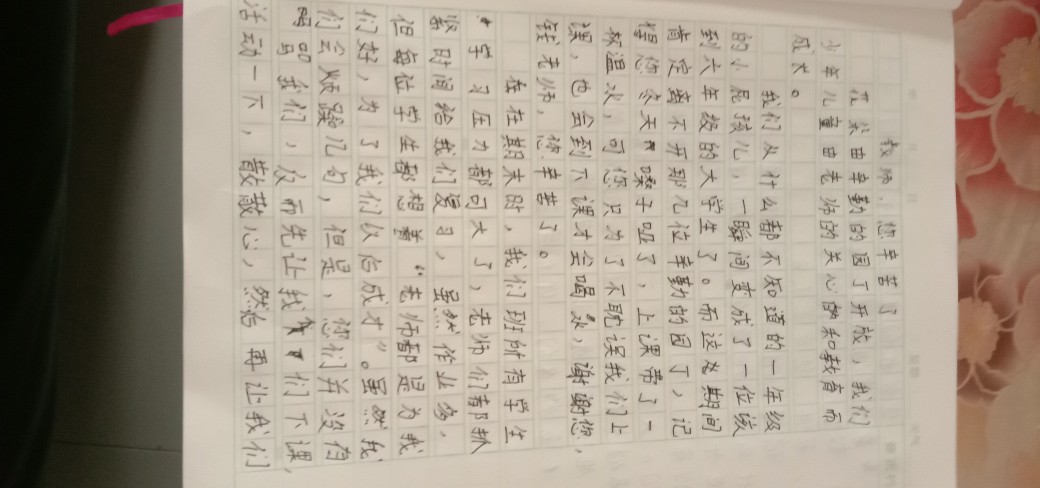 教师,您辛苦了
花朵由辛勤的园丁开放,我们
少年儿童由老师的关心的和教育而
成长。
我们从什么都不知道的一年级
的小屁孩儿,一瞬间变成了一位该
到六年级的大学生了。而这期间
肯定离不开那几位辛勤的园丁,记
得您冬天嗓子哑了,上课带了一
杯温水,可您只为了不耽误我们上
课,也会到下课才会喝水,谢谢您,
钱老师,您辛苦了。
在在期末时,我们班所有学生
学习压力都可大了,老师们都抓
紧时间给我们复习,虽然作业多,
但每位学生都想着“老师都是为我
们好,为了我们以后成才”。虽然我
们会烦躁几句,但是,您们并没有
骂我们,反而先让我们下课,
活动一下,散散心,然后再让我们